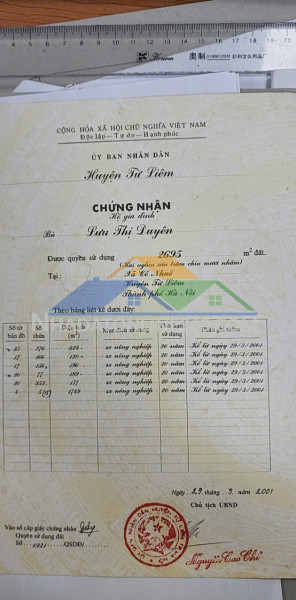 CỘNG HÒA XÃ HỘI CHỦ NGHĨA VIỆT NAM
Độc lập - Tự do - Hạnh phúc
ỦY BAN NHÂN DÂN
Huyện Từ Liêm
CHỨNG NHẬN
Hộ gia đình
Bà Lưu Thị Duyên
Được quyền sử dụng 2695 m² đất.
(Hai nghìn sáu trăm chín mươi năm)
Tại: Xã Cổ Nhuế
Huyện Từ Liêm
Thành phố Hà Nội
Theo bảng liệt kê dưới đây:
Số tờ bản đồ Số thửa Diện tích (m²) Mục đích sử dụng Thời hạn sử dụng Phần ghi thêm
25 176 324 sx nông nghiệp 20 năm Kể từ ngày 29/3/2001
17 166 120 sx nông nghiệp 20 năm Kể từ ngày 29/3/2001
17 156 196 sx nông nghiệp 20 năm Kể từ ngày 29/3/2001
20 77 189 sx nông nghiệp 20 năm Kể từ ngày 29/3/2001
20 253 117 sx nông nghiệp 20 năm Kể từ ngày 29/3/2001
4 1749 sx nông nghiệp 20 năm Kể từ ngày 29/3/2001
Ngày 29 tháng 3 năm 2001
Chủ tịch UBND
Vào sổ cấp giấy chứng nhận
Quyền sử dụng đất
Số QSDĐ/
Nguyễn Cao Chí